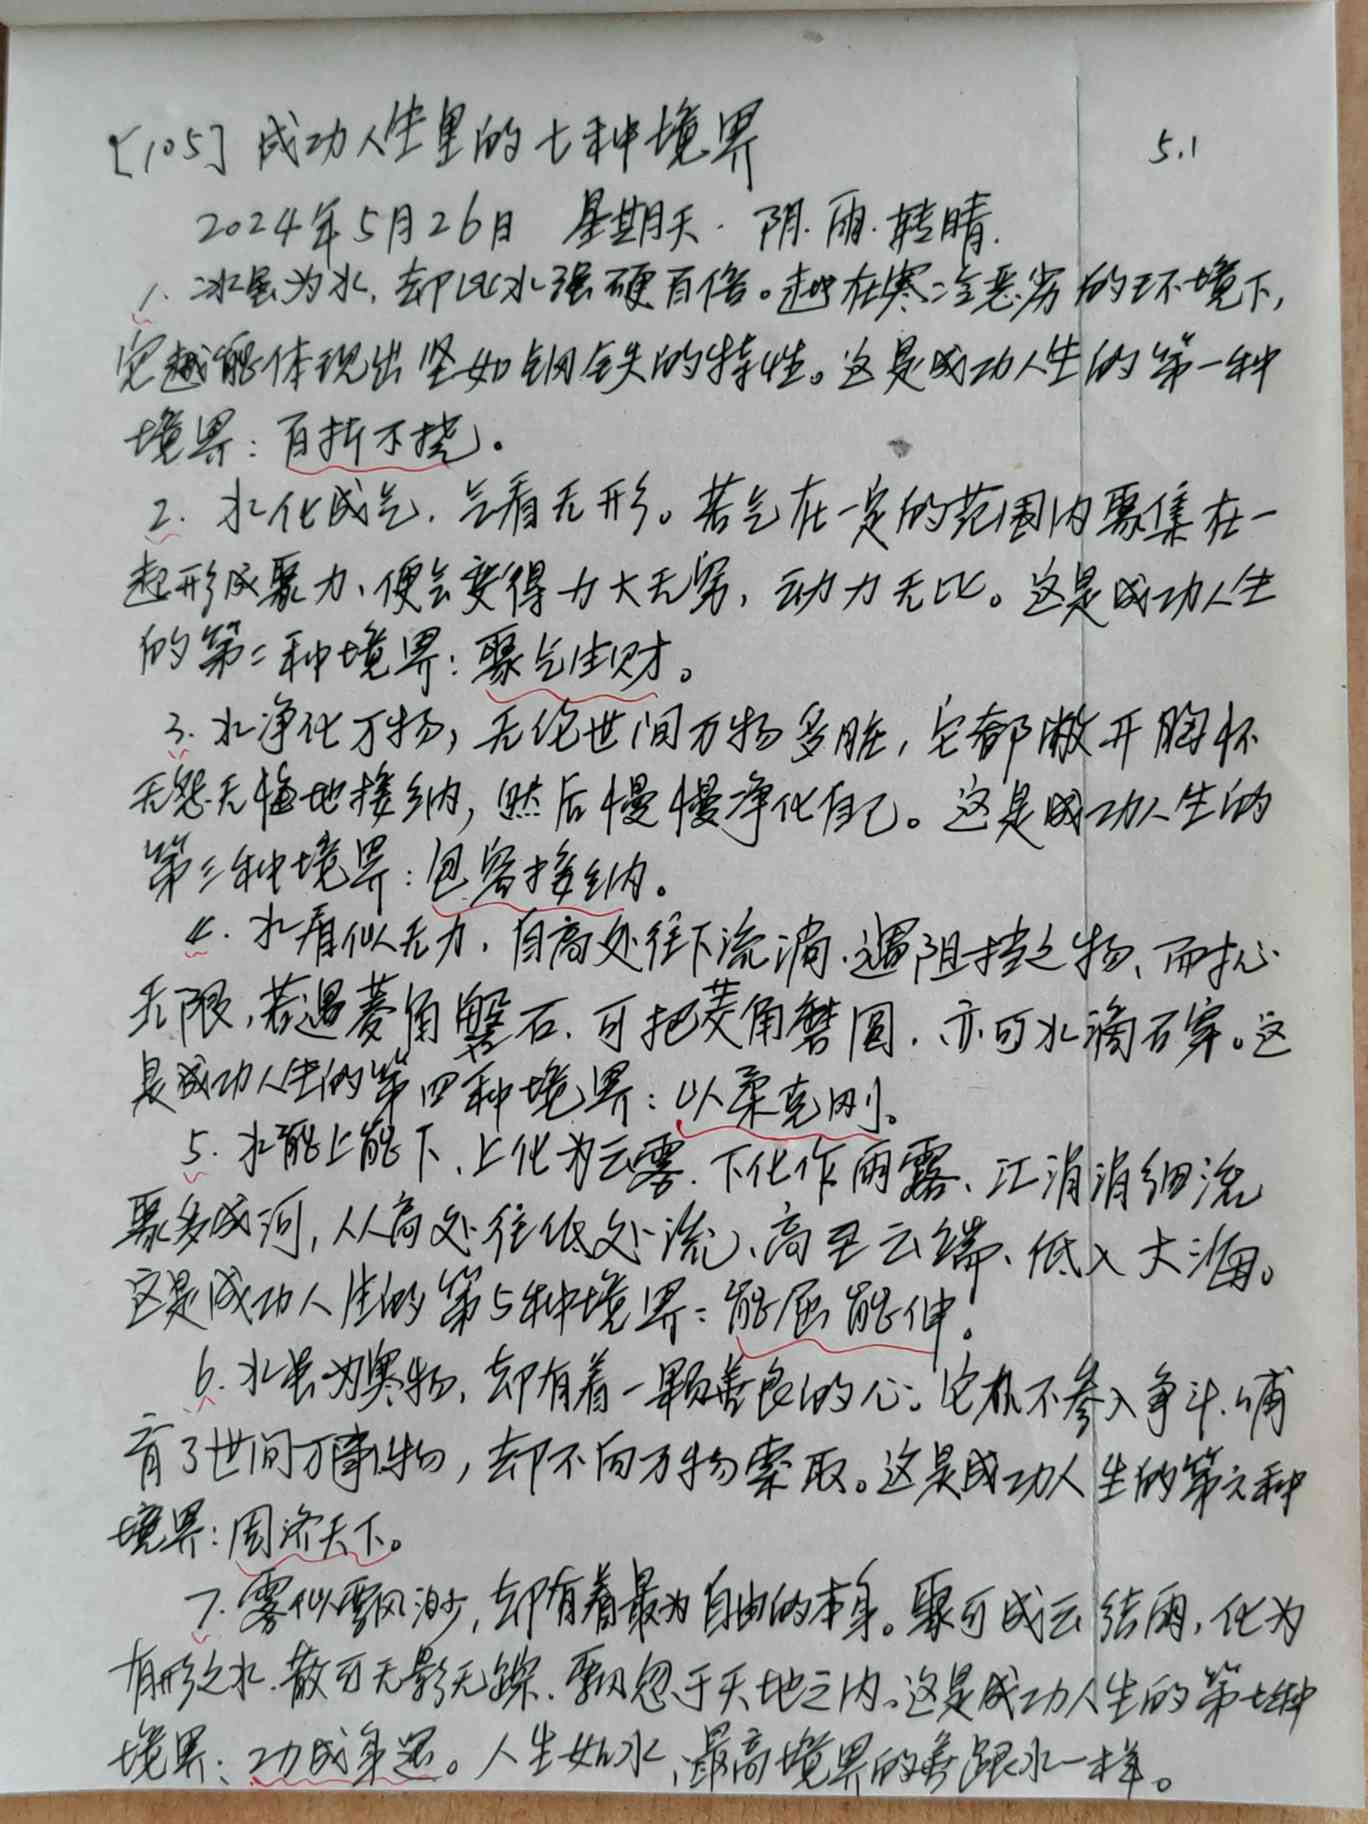 [105] 成功人生里的七种境界 5.1
2024年5月26日 星期天. 阴.雨.转晴.
1. 冰虽为水,却比水强硬百倍。越在寒冷恶劣的环境下,
它越能体现出坚如钢铁的特性。这是成功人生的第一种
境界:百折不挠。
2. 水化成气,气看无形。若气在一定的范围内聚集在一
起形成聚力、便会变得力大无穷,动力无比。这是成功人生
的第二种境界:聚气生财。
3. 水净化万物,无论世间万物多脏,它都敞开胸怀
无怨无悔地接纳,然后慢慢净化自己。这是成功人生的
第三种境界:包容接纳。
4. 水看似无力,自高处往下流淌.遇阻挡之物、而忄心
无限,若遇菱角磐石.可把菱角磨圆.亦可水滴石穿。这
是成功人生的第四种境界:以柔克刚。
5. 水能上能下.上化为云雾.下化作雨露、汇涓涓细流
聚多成河,从高处往低处流、高至云端、低入大海。
这是成功人生的第5种境界:能屈能伸。
6. 水虽为寒物,却有着一颗善良的心。它从不参入争斗.哺
育了世间万事物,却不向万物索取。这是成功人生的第六种
境界:周济天下。
7. 雾似飘渺,却有着最为自由的本身。聚可成云结雨,化为
有形之水.散可无影无踪.飘忽于天地之内。这是成功人生的第七种
境界:功成身退。人生如水,最高境界的善跟水一样。